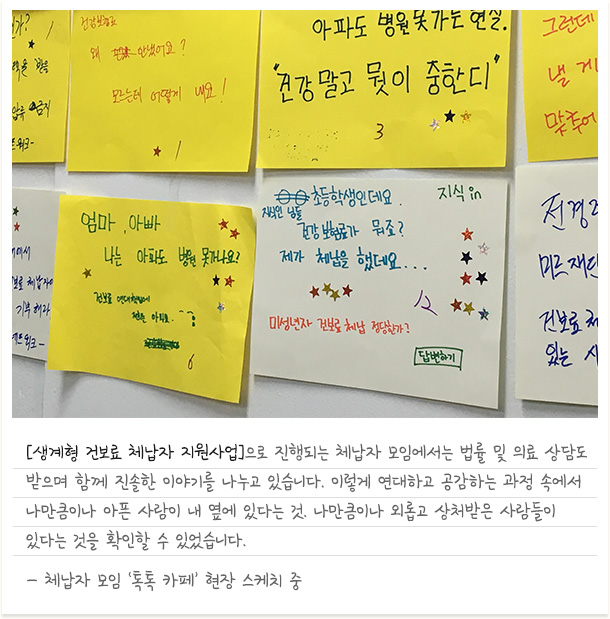 가?
건강보험료
왜 안냈어요?
모르는데 어떻게 내요!
1
아파도 병원 못가는 현실.
"건강말고 뭣이 중한디"
3
그런데
낼 게
맞추어
엄마, 아빠
나는 아파도 병원 못가나요?
건보료 연대
전은 아파요.
6
초등학생인데요. 지식in
지식인 님들
건강보험료가 뭐죠?
제가 체납을 했데요...
12
미성년자 건보료 체납 정당한가?
답변하기
에서
보료 체납자에
기부 해라
전경
미르재단
건보료 체
있는 사
[생계형 건보료 체납자 지원사업]으로 진행되는 체납자 모임에서는 법률 및 의료 상담도
받으며 함께 진솔한 이야기를 나누고 있습니다. 이렇게 연대하고 공감하는 과정 속에서
나만큼이나 아픈 사람이 내 옆에 있다는 것. 나만큼이나 외롭고 상처받은 사람들이
있다는 것을 확인할 수 있었습니다.
- 체납자 모임 '톡톡 카페' 현장 스케치 중